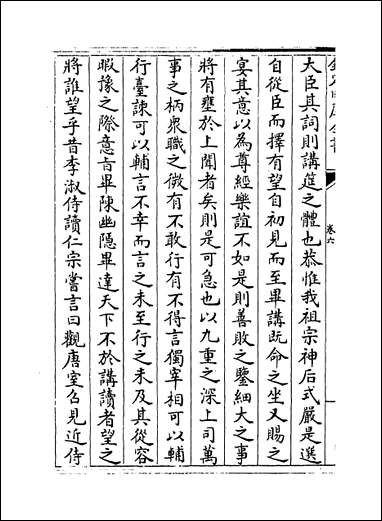 大臣其詞則講筵之體也恭惟我祖宗神后式嚴是選
自從臣而擇有望自初見而至畢講既命之坐又賜之
宴其意以為尊經樂誼不如是則善敗之鑒細大之事
將有壅於上聞者矣則是可急也以九重之深上司萬
事之柄衆職之微有不敢行有不得言獨宰相可以輔
行臺諫可以輔言不幸而言之未至行之未及其從容
暇豫之際意旨畢陳幽隱畢達天下不於講讀者望之
將誰望乎昔李淑侍讀仁宗嘗言曰觀唐室名見近侍
卷六